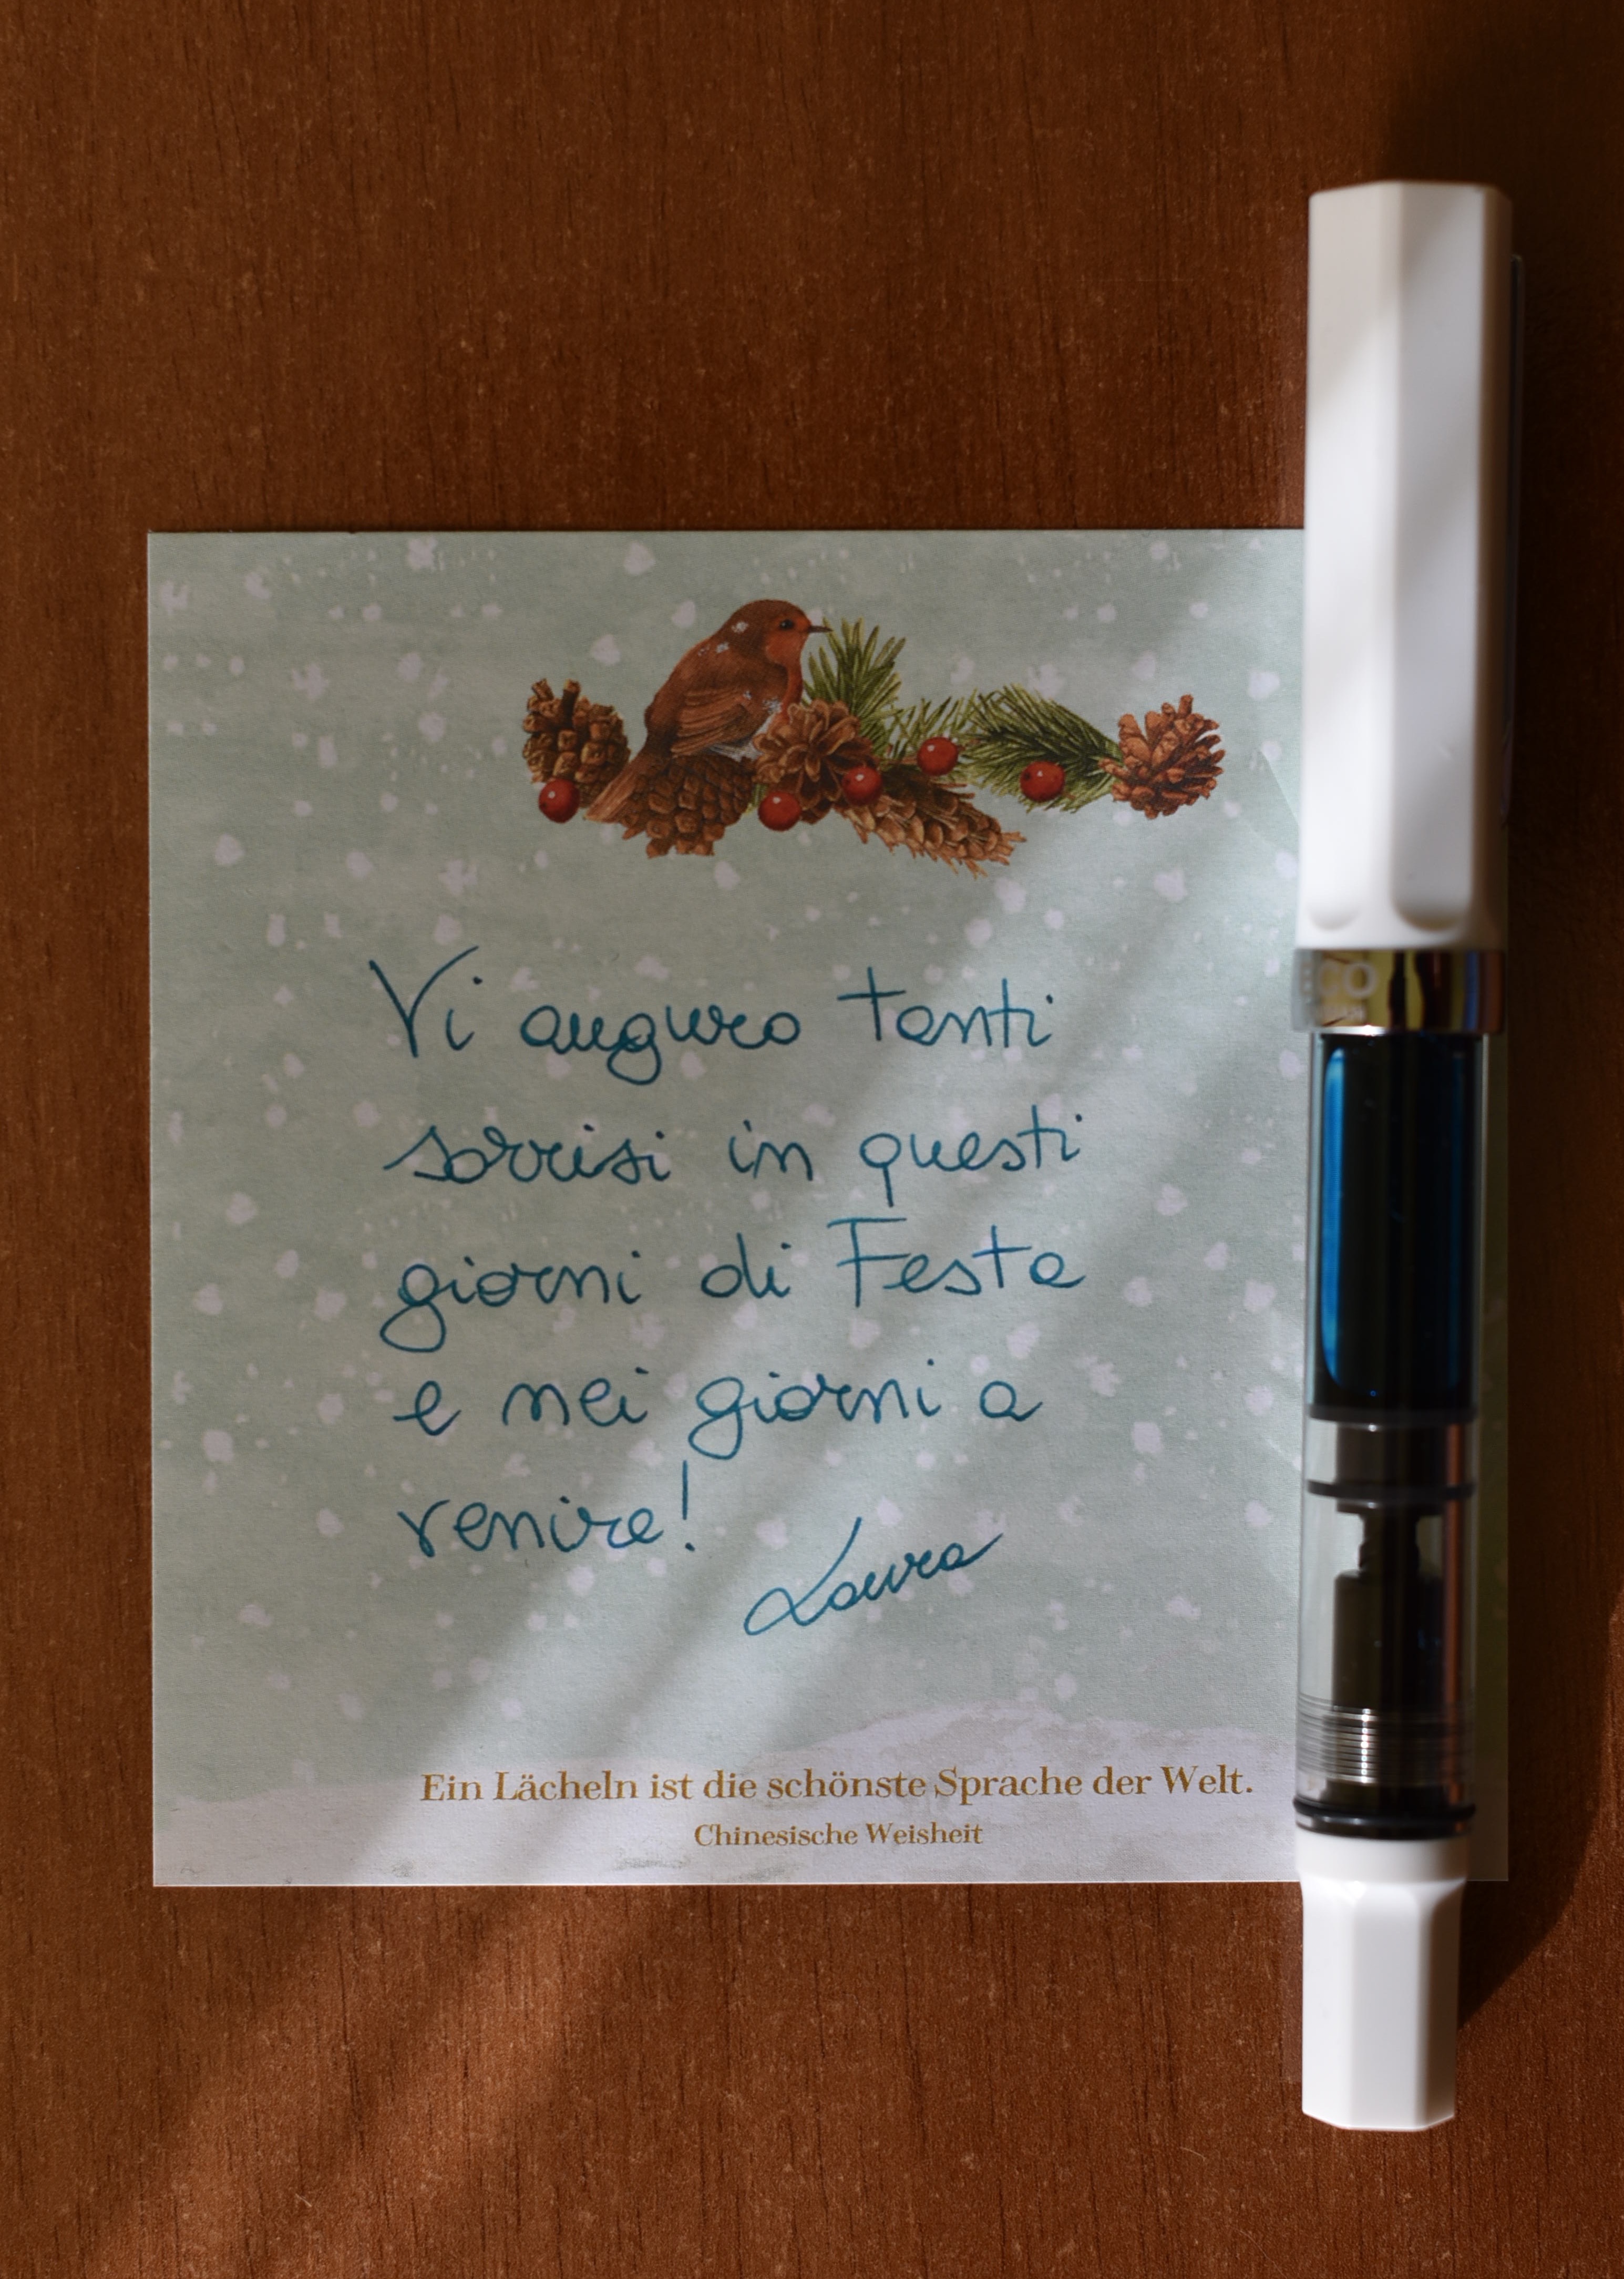 Vi auguro tanti
sorrisi in questi
giorni di Festa
e nei giorni a
venire!
Laura
Ein Lächeln ist die schönste Sprache der Welt.
Chinesische Weisheit